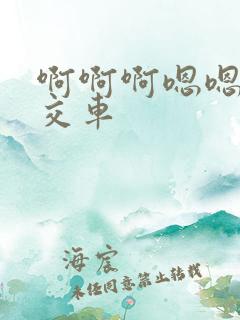 啊啊啊嗯嗯
交车
海宸
未经同意禁止转载